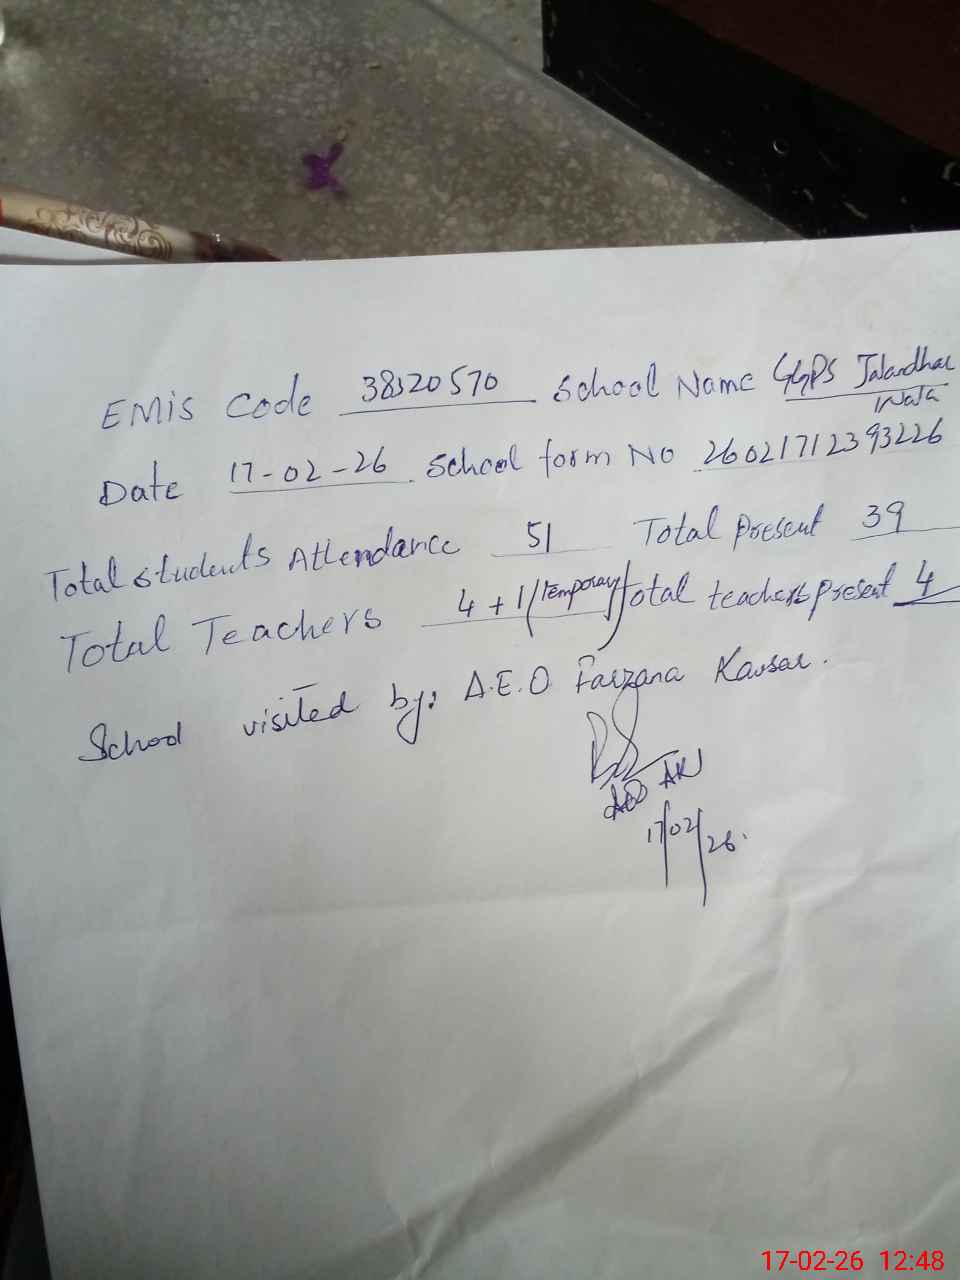 EMIS Code 38320570 School Name GGPS Jalandhar
Wala
Date 17-02-26 School form No 26021712393226
Total students Attendance 51 Total present 39
Total Teachers 4 + 1 (temporary) total teachers present 4
School visited by: A.E.O Farzana Kausar.
17/02/26.
17-02-26 12:48